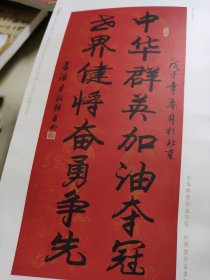 中华群英加油夺冠
戊子年春月于北京
世界健将奋勇争先